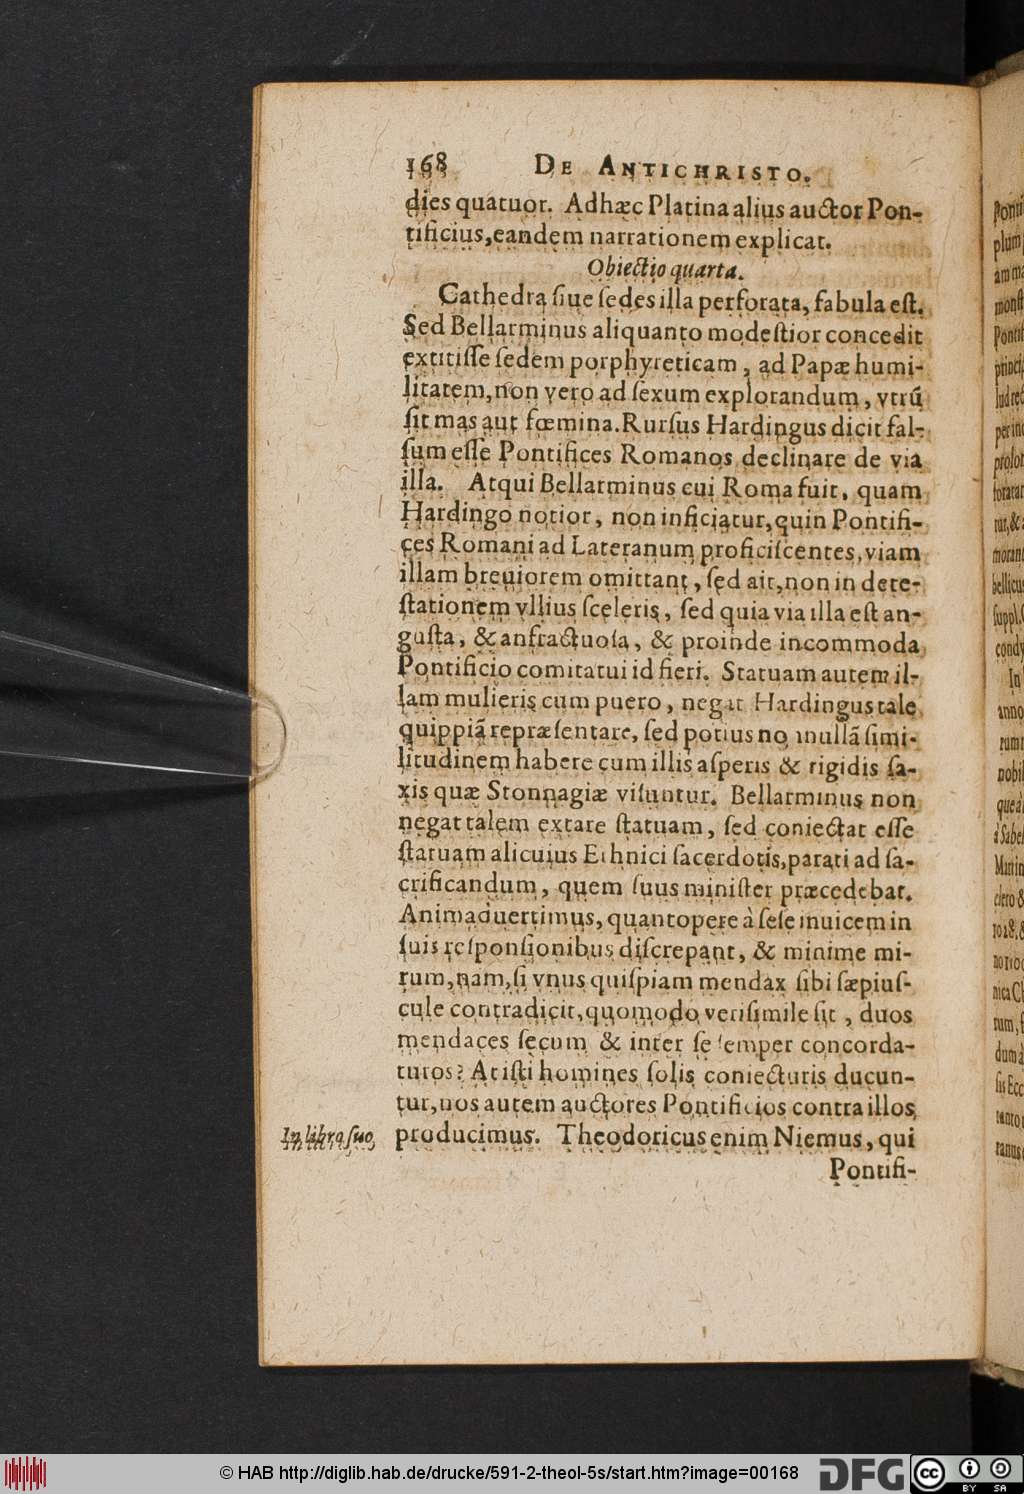 168 DE ANTICHRISTO.
dies quatuor. Adhæc Platina alius auctor Pon-
tificius, eandem narrationem explicat.
Obiectio quarta.
Cathedra ſiue ſedes illa perforata, fabula eſt.
Sed Bellarminus aliquanto modeſtior concedit
extitiſſe ſedem porphyreticam, ad Papæ humi-
litatem, non vero ad ſexum explorandum, vtrũ
ſit mas aut fœmina. Rurſus Hardingus dicit fal-
ſum eſſe Pontifices Romanos declinare de via
illa. Atqui Bellarminus cui Roma fuit, quam
Hardingo notior, non inficiatur, quin Pontifi-
ces Romani ad Lateranum proficiſcentes, viam
illam breuiorem omittant, ſed ait, non in dete-
ſtationem vllius ſceleris, ſed quia via illa eſt an-
guſta, & anfractuoſa, & proinde incommoda
Pontificio comitatui id fieri. Statuam autem il-
lam mulieris cum puero, negat Hardingus tale
quippiã repræſentare, ſed potius no nnullã ſimi-
litudinem habere cum illis aſperis & rigidis ſa-
xis quæ Stonnagiæ viſuntur. Bellarminus non
negat talem extare ſtatuam, ſed coniectat eſſe
ſtatuam alicuius Ethnici ſacerdotis, parati ad ſa-
crificandum, quem ſuus miniſter præcedebat.
Animaduertimus, quantopere à ſeſe inuicem in
ſuis reſponſionibus diſcrepant, & minime mi-
rum, nam, ſi vnus quiſpiam mendax ſibi ſæpiuſ-
cule contradicit, quomodo veriſimile ſit, duos
mendaces ſecum & inter ſe ſemper concorda-
turos? At iſti homines ſolis coniecturis ducun-
tur, nos autem auctores Pontificios contra illos
In libro ſuo, producimus. Theodoricus enim Niemus, qui
Pontifi-
© HAB http://diglib.hab.de/drucke/591-2-theol-5s/start.htm?image=00168
DFG
cc BY SA